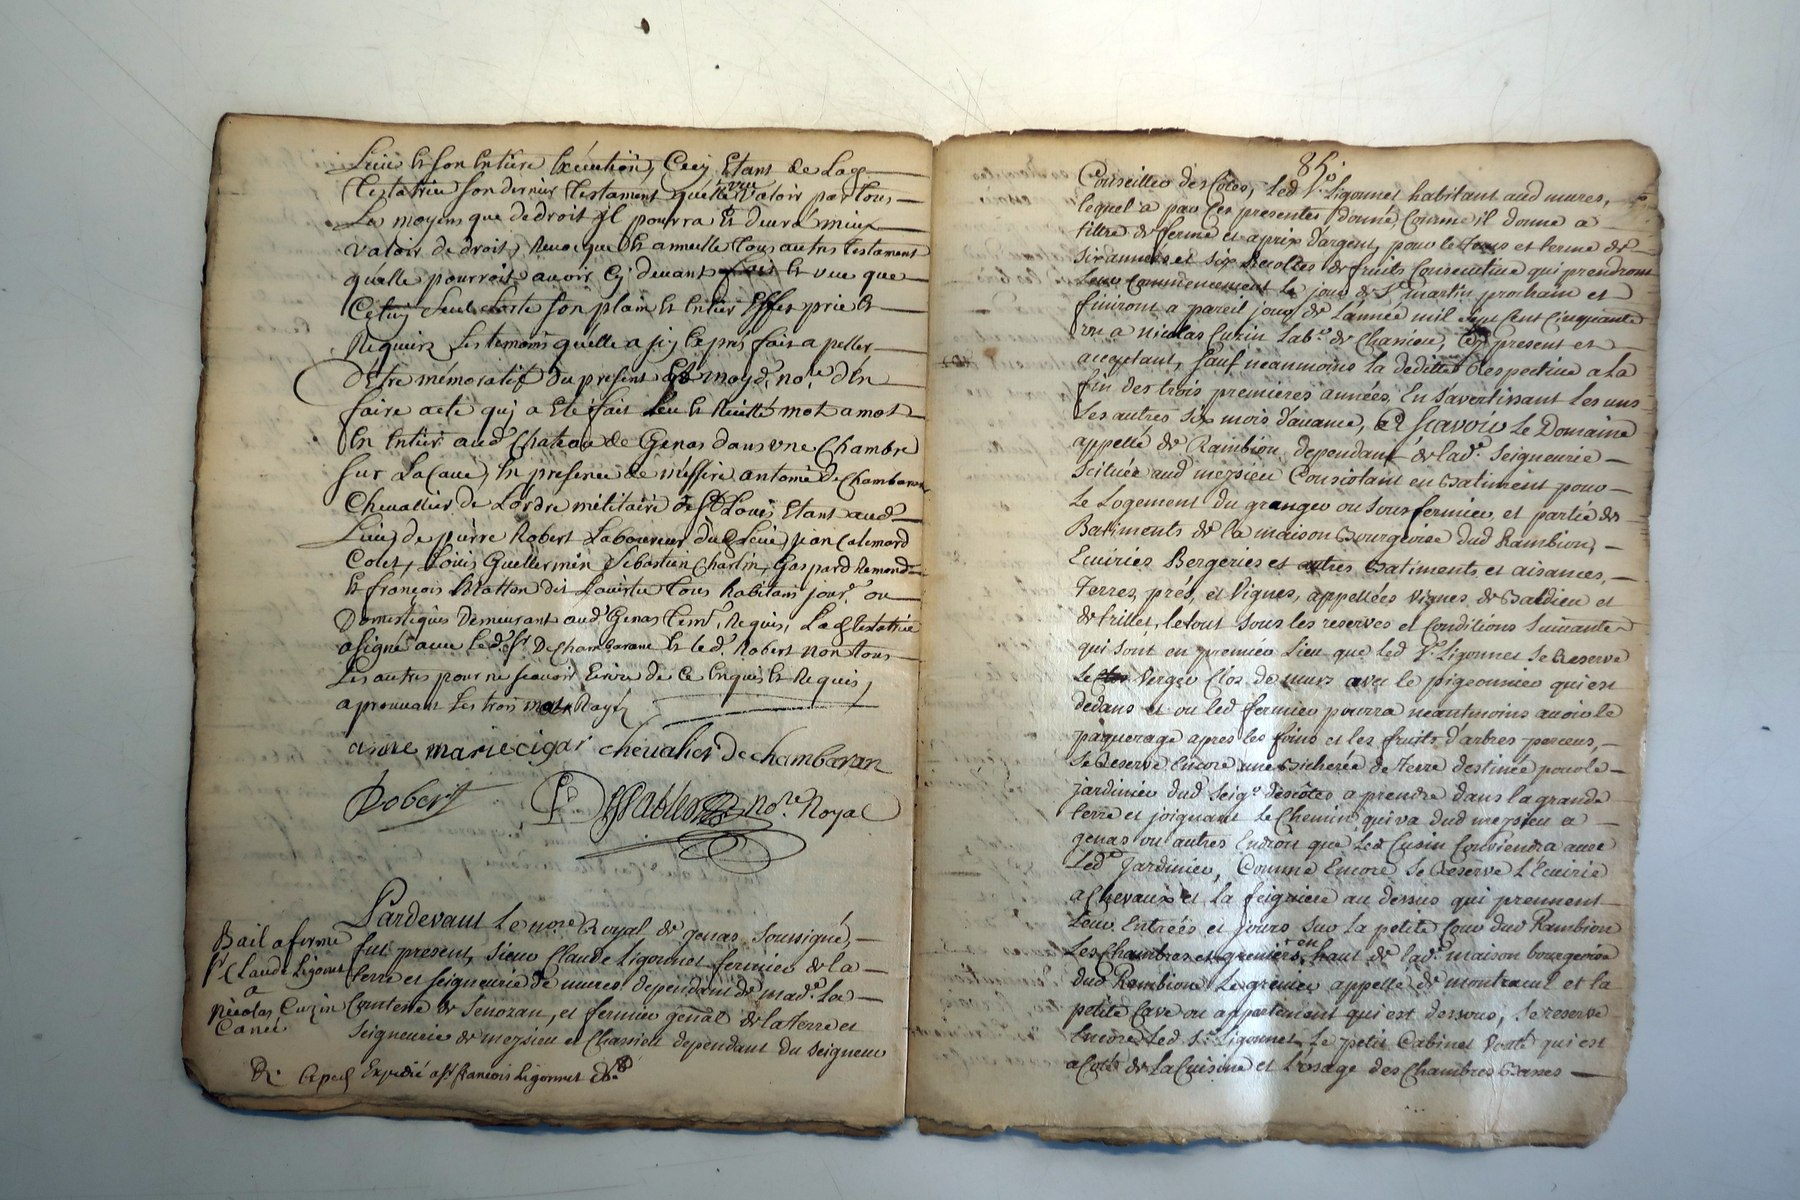 Lieu & son Entiere Exécution, Cecy Etans de Lad.
Testatrice son dernier Testament quelle veu valoir par tous
Les moyens que de droit Jl pourra & devra mieux
valoir de droit, Revoque & annulle tous autres testament
quelle pourroit avoir Cy devant fait & vue que
Cetuy seul sorte son plain & Entier Effet prie &
Requiers Les temoins quelle a jcy Exprès fait apeller
detre mémoratif du present & moyd. no.re d'En
faire acte quj a Eté fait Leu & Recitté mot a mot
En Entier aud. Chateau de Genas dans vne Chambre
sur La Cave, En presence de messire antoine De Chambaran
Chevallier de Lordre militaire de St Loüis Etant aud.
Lieu, de pierre Robert Laboureur dud. Lieu, jean Calemard
Colet, Loüis Guellermin Sebastien Charlin, Gaspard Remond
& françois Ratton dit Lavertu tous habitans jour. ou
Domestiques Demeurant aud. Genas tem. Requis, Lad. testatrice
a signé avec led. Sr. De Chambarane & led. Robert non tous
Les autres pour ne scavoir Ecrire de ce Enquis & Requis,
aprouvant Les trois mots Rayés
anne marie cigar chevalier de chambaran
Robert no.re Royal
Bail a ferme
Sr. Claude Ligonnet
a
Nicolas Cuzin
Pardevant Le no.re Royal de genas soussigné,
fut present, sieur Claude Ligonnet fermier de la
terre et seigneurie de mures dependant de mad.e La
Comtesse de Senozan, et fermier genal de la terre et
Seigneurie de meysieu et Chassieu dependant du seigneur
Expedié a Sr. francois Ligonnet
85.
Conseiller des Côtes, Led. Sr. Ligonnet habitant aud mures,
lequel a par Ces presentes donné, Comme il donne a
tittre de ferme et a prix d'argent, pour le tems et terme de
six années et six Récoltes de fruits Consecutive qui prendront
Leur Commencement Le jour de St. martin prochain et
finiront a pareil jour de L'année mil sept cent Cinquante
vn a Nicolas Cuzin Lab.r de Chassieu, Cy present et
acceptant, sauf neanmoins la deditte Respective a La
fin des trois premieres années, En s'avertissant Les uns
Les autres six mois d'avance, Et Scavoir Le Domaine
appellé de Rambion dependant de lad.e Seigneurie
Scituée aud meysieu Consistant en Batiment pour
Le Logement du granger ou sous fermier et partie des
Batiments de la maison Bourgeoise dud Rambion,
Ecuiries Bergeries et autres Batiments et aisances,
Terres, prés, et Vignes, appellées Vignes de Baldieu et
de trillet, le tout sous les reserves et Conditions suivante
qui sont en premier Lieu que led Sr. Ligonnet se Reserve
Le clos Verger Clos de murs avec le pigeonnier qui est
dedans et ou led fermier pourra neantmoins avoir le
paquerage apres les foins et les fruits d'arbres percus,
Se Reserve Encore une Bicherée de Terre destinée pour le
jardinier dud Seig.r descôtes a prendre dans la grande
terre et joignant Le Chemin qui va dud meysieu a
genas ou autres Endroit que led Cusin Conviendra avec
Led. Jardinier, Comme Encore Se Reserve L'Ecuirie
a Chevaux et La feigniere au dessus qui prennent
Leur Entrées et jours sur la petite Cour dud Rambion
Les Chambres et greniers en haut de lad.e maison bourgeoise
dud Rambion Le grenier appellé de montraud et la
petite Cave ou appartement qui est dessous, se reserve
Encore Led. Sr. Ligonnet Le petit Cabinet Voûté qui est
a Coté de La Cuisine et L'vsage des Chambres Basses